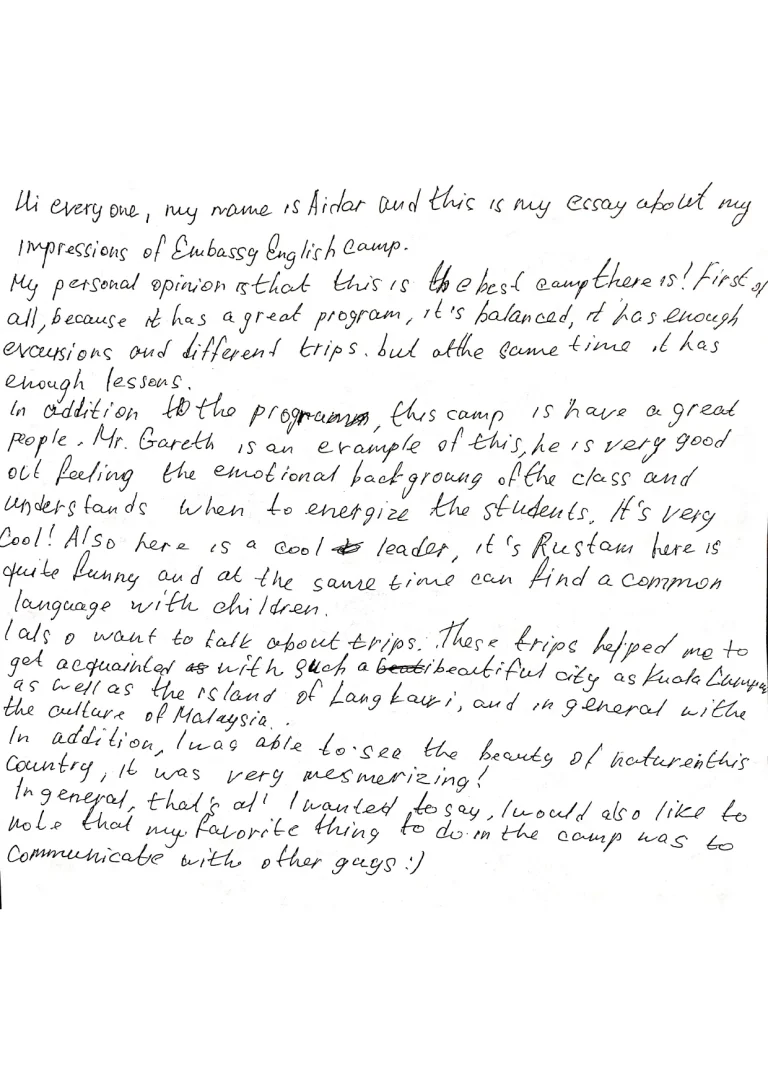 Hi everyone, my name is Aidar and this is my essay about my
impressions of Embassy English Camp.
My personal opinion is that this is the best camp there is! First of
all, because it has a great program, it's balanced, it has enough
excursions and different trips. but at the same time it has
enough lessons.
In addition to the program, this camp is have a great
people. Mr. Gareth is an example of this, he is very good
at feeling the emotional backgroung of the class and
understands when to energize the students. It's very
cool! Also here is a cool leader, it's Rustam here is
quite funny and at the same time can find a common
language with children.
I also want to talk about trips. These trips helped me to
get acquainted as with such a beautiful city as Kuala Lumpur
as well as the island of Langkawi, and in general withe
the culture of Malaysia.
In addition, I was able to see the beauty of nature in this
country, it was very mesmerizing!
In general, that's all I wanted to say, I would also like to
note that my favorite thing to do in the camp was to
communicate with other guys :)